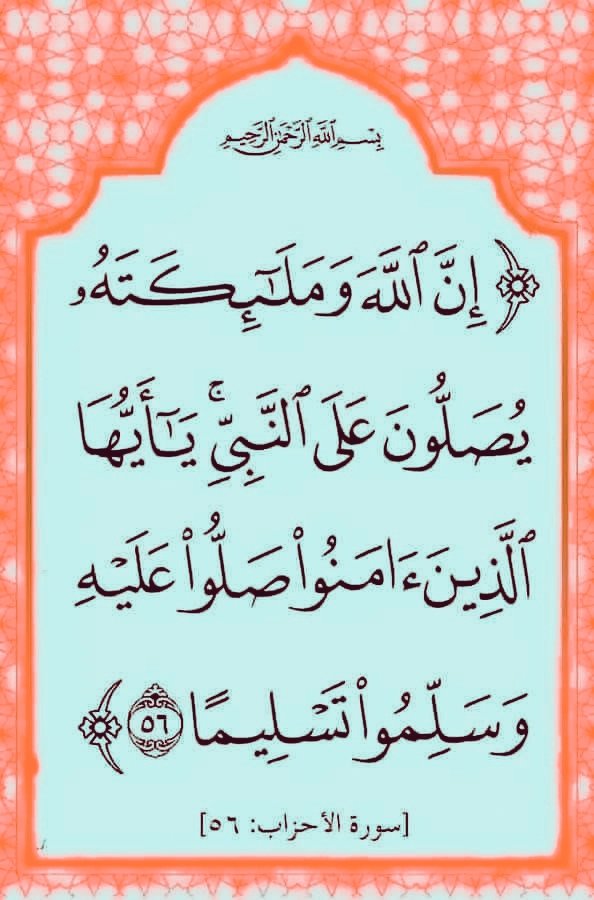 بِسْمِ ٱللَّهِ ٱلرَّحْمَٰنِ ٱلرَّحِيمِ
﴿ إِنَّ ٱللَّهَ وَمَلَـٰٓئِكَتَهُۥ
يُصَلُّونَ عَلَى ٱلنَّبِىِّۚ يَـٰٓأَيُّهَا
ٱلَّذِينَ ءَامَنُوا۟ صَلُّوا۟ عَلَيْهِ
وَسَلِّمُوا۟ تَسْلِيمًا ٥٦ ﴾
[سورة الأحزاب: ٥٦]